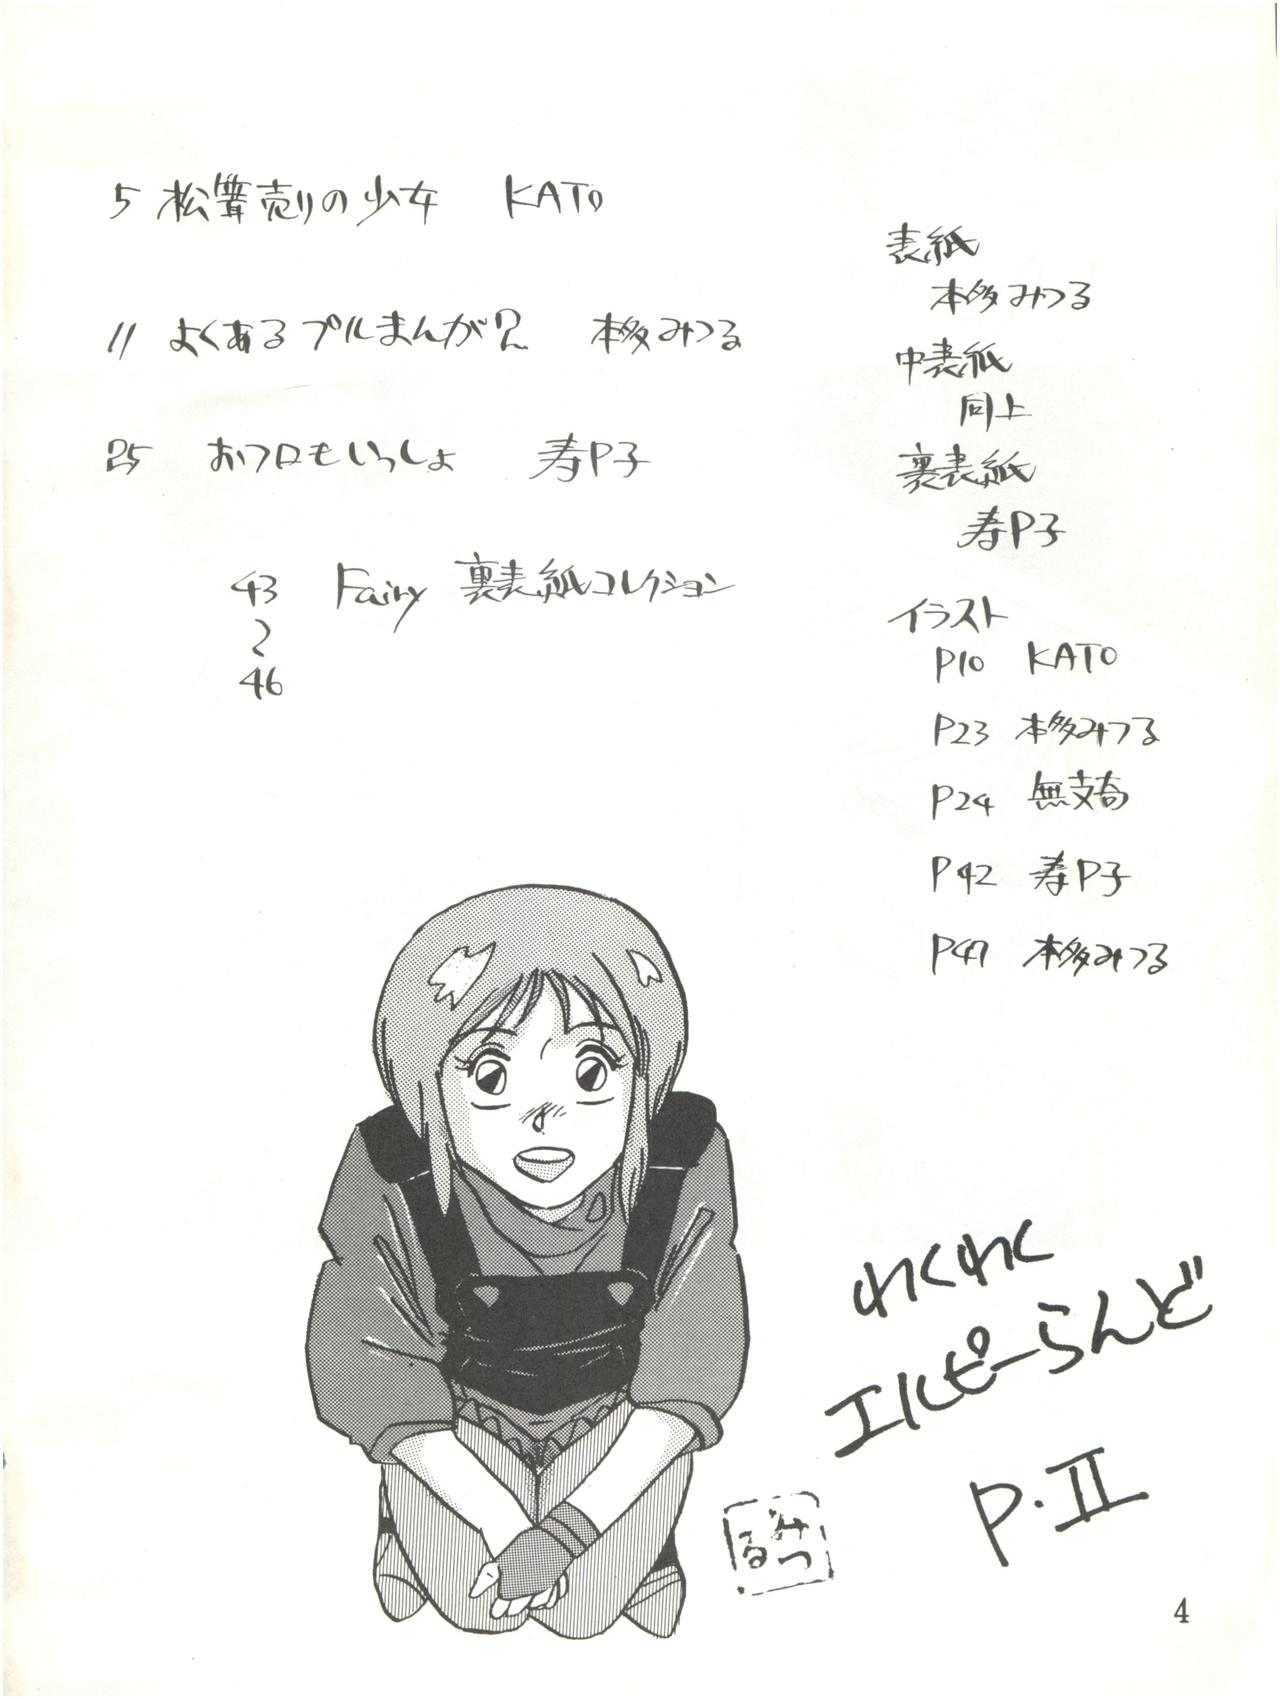 5 松茸売りの少女 KATO
11 よくあるプルまんが 本多みつる
25 おフロもいっしょ 寿P子
43
〜
46
Fairy 裏表紙コレクション
表紙
本多みつる
中表紙
同上
裏表紙
寿P子
イラスト
P10 KATO
P23 本多みつる
P24
P42 寿P子
P47 本多みつる
わくわく
エルピーらんど
P.II
みつる
4